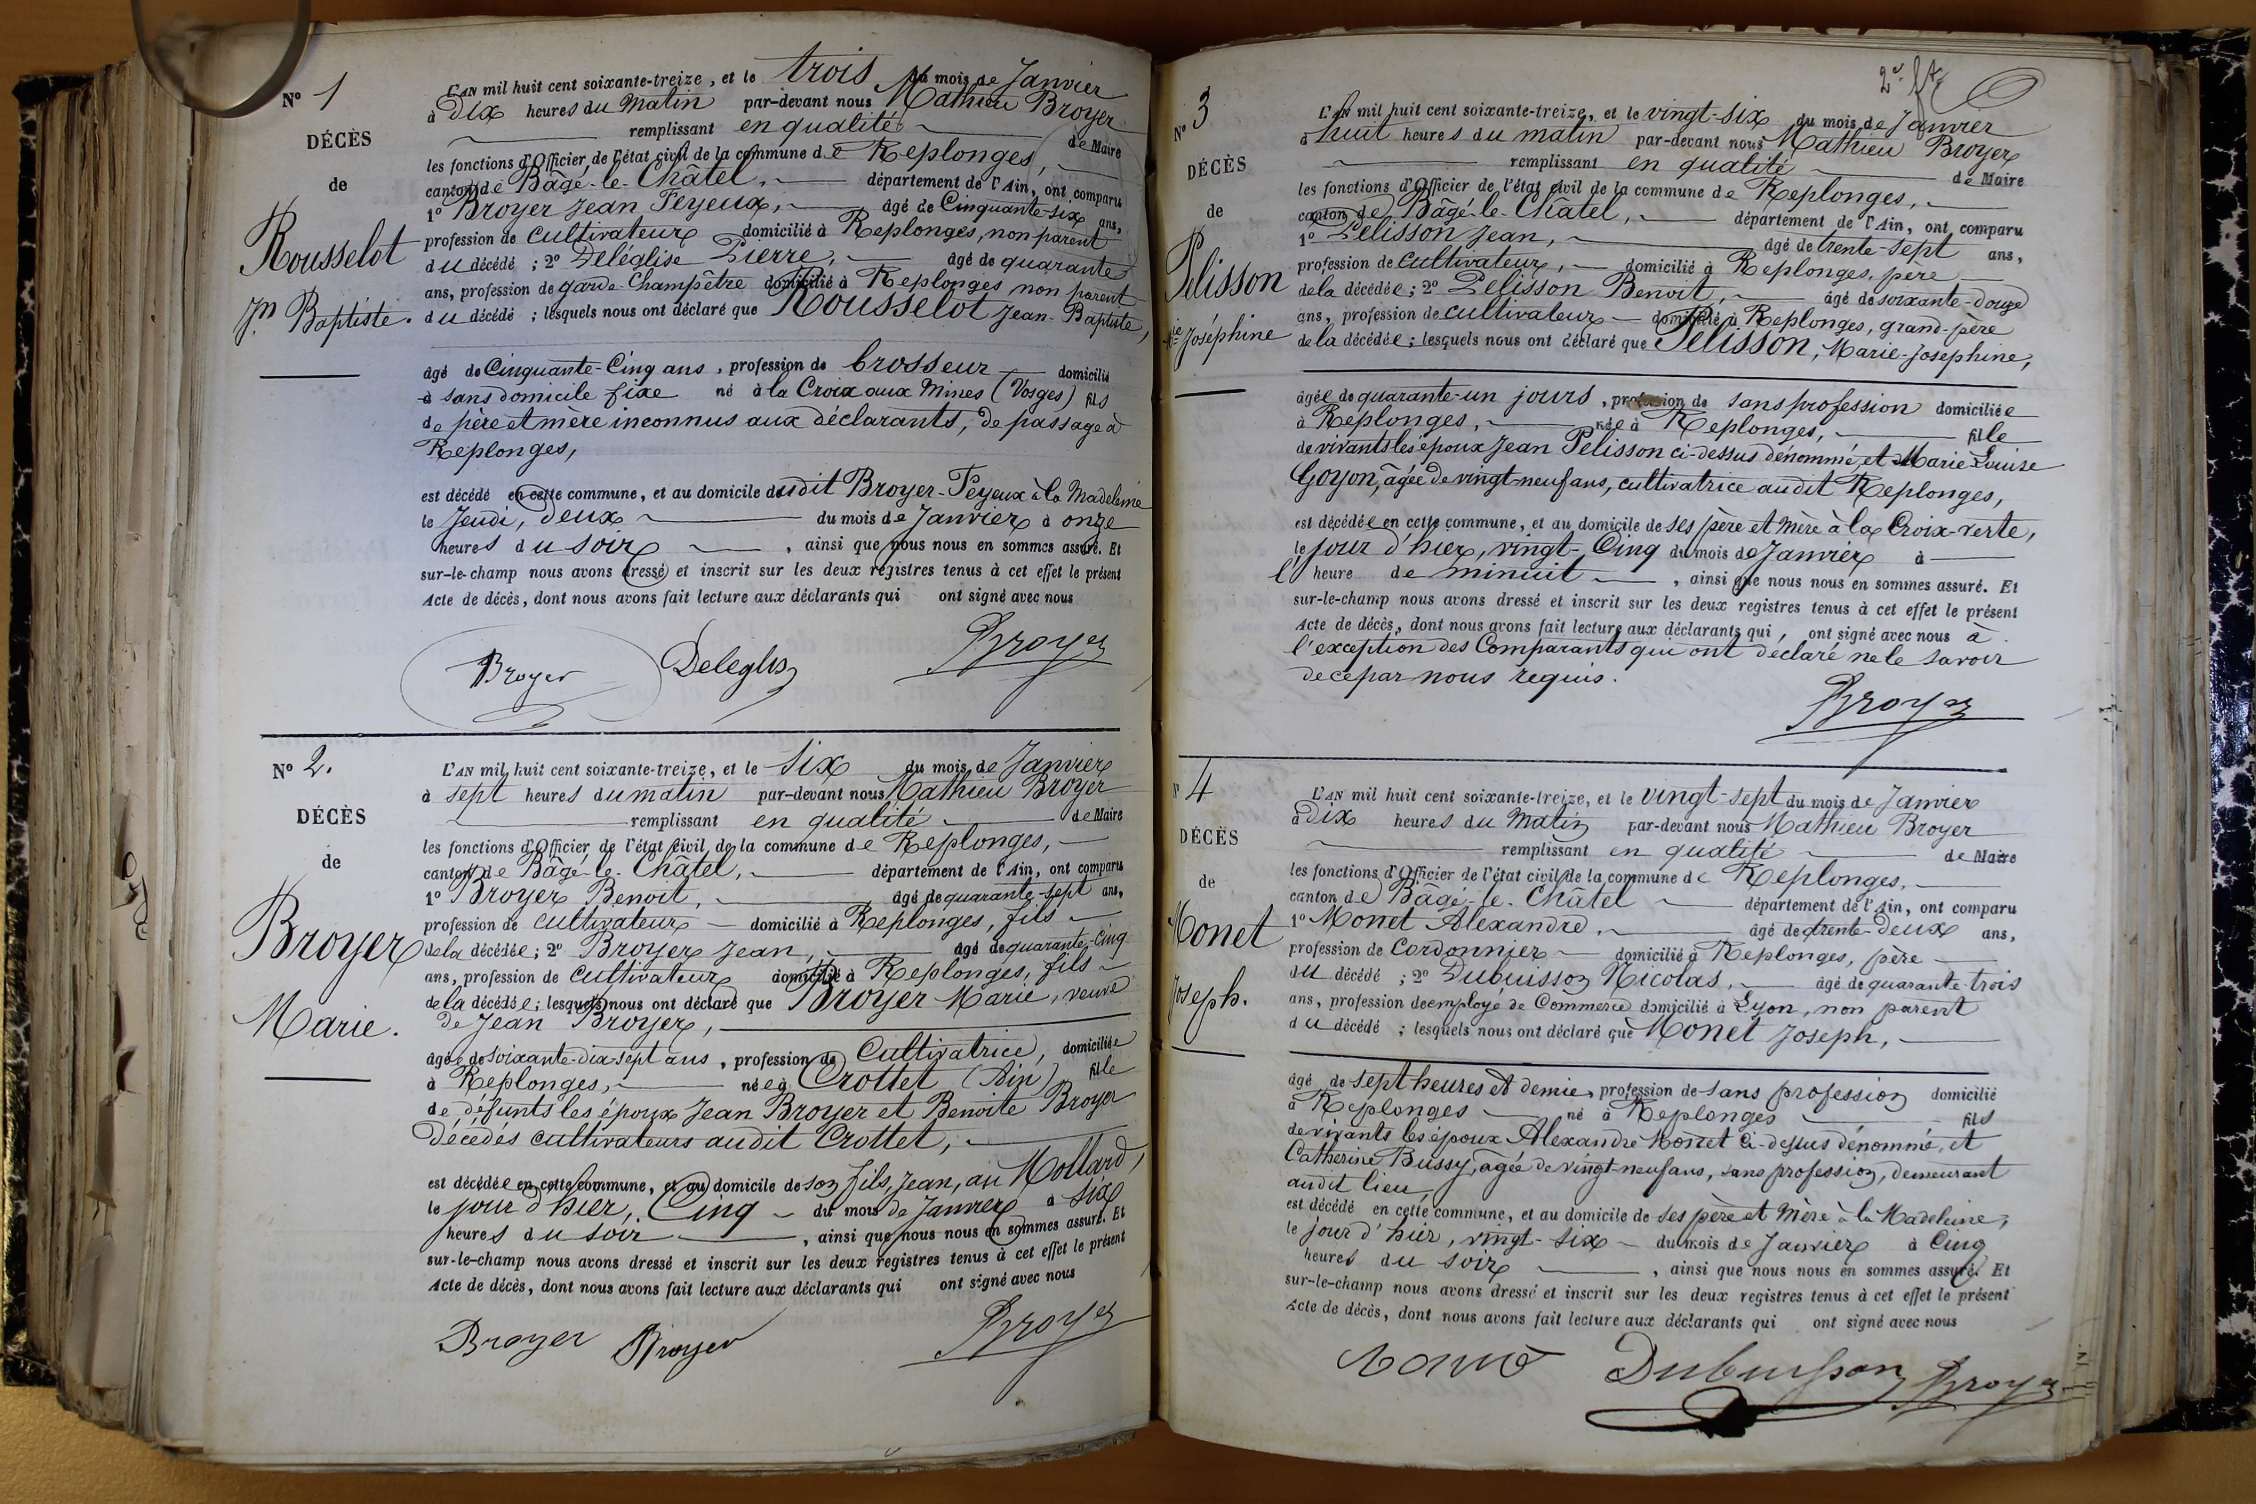 N° 1
DÉCÈS
de
Rousselot
Jn Baptiste.
L'AN mil huit cent soixante-treize, et le trois du mois de Janvier
à dix heures du matin par-devant nous Mathieu Broyer
remplissant en qualité de Maire
les fonctions d'Officier de l'état civil de la commune de Replonges,
canton de Bâgé-le-Châtel, département de l'Ain, ont comparu
1° Broyer Jean Feyeux, âgé de Cinquante-six ans,
profession de cultivateur domicilié à Replonges, non parent
du décédé ; 2° Deléglise Pierre, âgé de quarante
ans, profession de garde-Champêtre domicilié à Replonges non parent
du décédé ; lesquels nous ont déclaré que Rousselot Jean-Baptiste,
âgé de Cinquante-Cinq ans, profession de brosseur domicilié
à sans domicile fixe né à la Croix aux Mines (Vosges) fils
de père et mère inconnus aux déclarants, de passage à
Replonges,
est décédé en cette commune, et au domicile dudit Broyer-Feyeux à la Madeleine
le Jeudi, deux du mois de Janvier à onze
heures du soir, ainsi que nous nous en sommes assuré. Et
sur-le-champ nous avons dressé et inscrit sur les deux registres tenus à cet effet le présent
Acte de décès, dont nous avons fait lecture aux déclarants qui ont signé avec nous
Broyer Deleglis Broyer
N° 2.
DÉCÈS
de
Broyer
Marie.
L'AN mil huit cent soixante-treize, et le six du mois de Janvier
à sept heures du matin par-devant nous Mathieu Broyer
remplissant en qualité de Maire
les fonctions d'Officier de l'état civil de la commune de Replonges,
canton de Bâgé-le-Châtel, département de l'Ain, ont comparu
1° Broyer Benoit, âgé de quarante-sept ans,
profession de cultivateur domicilié à Replonges, fils
de la décédée ; 2° Broyer Jean, âgé de quarante-Cinq
ans, profession de cultivateur domicilié à Replonges, fils
de la décédée ; lesquels nous ont déclaré que Broyer Marie, veuve
de Jean Broyer,
âgée de soixante-dix-sept ans, profession de Cultivatrice, domiciliée
à Replonges, née à Crottet (Ain) fille
de défunts les époux Jean Broyer et Benoite Broyer
Décédés cultivateurs audit Crottet,
est décédée en cette commune, et au domicile de son fils, Jean, au Mollard,
le jour d'hier, Cinq du mois de Janvier à six
heures du soir, ainsi que nous nous en sommes assuré. Et
sur-le-champ nous avons dressé et inscrit sur les deux registres tenus à cet effet le présent
Acte de décès, dont nous avons fait lecture aux déclarants qui ont signé avec nous
Broyer Broyer Broyer
N° 3
DÉCÈS
de
Pelisson
Mie Joséphine
L'AN mil huit cent soixante-treize, et le vingt-six du mois de Janvier
à huit heures du matin par-devant nous Mathieu Broyer
remplissant en qualité de Maire
les fonctions d'Officier de l'état civil de la commune de Replonges,
canton de Bâgé-le-Châtel, département de l'Ain, ont comparu
1° Pelisson Jean, âgé de trente-sept ans,
profession de cultivateur, domicilié à Replonges, père
de la décédée ; 2° Pelisson Benoit, âgé de soixante-douze
ans, profession de cultivateur domicilié à Replonges, grand-père
de la décédée ; lesquels nous ont déclaré que Pelisson, Marie-Josephine,
âgée de quarante-un jours, profession de sans profession domiciliée
à Replonges, née à Replonges, fille
de vivants les époux Jean Pelisson ci-dessus dénommé, et Marie Louise
Goyon, âgée de vingt-neuf ans, cultivatrice audit Replonges,
est décédée en cette commune, et au domicile de ses père et mère à la Croix-verte,
le jour d'hier, vingt-Cinq du mois de Janvier à
l'heure de minuit, ainsi que nous nous en sommes assuré. Et
sur-le-champ nous avons dressé et inscrit sur les deux registres tenus à cet effet le présent
Acte de décès, dont nous avons fait lecture aux déclarants qui, ont signé avec nous à
l'exception des Comparants qui ont déclaré ne le savoir
de ce par nous requis.
Broyer
N° 4
DÉCÈS
de
Monet
Joseph.
L'AN mil huit cent soixante-treize, et le vingt-sept du mois de Janvier
à dix heures du Matin par-devant nous Mathieu Broyer
remplissant en qualité de Maire
les fonctions d'Officier de l'état civil de la commune de Replonges,
canton de Bâgé-le-Châtel département de l'Ain, ont comparu
1° Monet Alexandre, âgé de trente-deux ans,
profession de Cordonnier domicilié à Replonges, père
du décédé ; 2° Dubuisson Nicolas, âgé de quarante-trois
ans, profession de employé de Commerce domicilié à Lyon, non parent
du décédé ; lesquels nous ont déclaré que Monet Joseph,
âgé de sept heures et demie, profession de sans profession domicilié
à Replonges né à Replonges fils
de vivants les époux Alexandre Monet ci-dessus dénommé, et
Catherine Bussy, âgée de vingt-neuf ans, sans profession, demeurant
audit lieu,
est décédé en cette commune, et au domicile de ses père et Mère à la Madeleine,
le jour d'hier, vingt-six du mois de Janvier à Cinq
heures du soir, ainsi que nous nous en sommes assuré. Et
sur-le-champ nous avons dressé et inscrit sur les deux registres tenus à cet effet le présent
Acte de décès, dont nous avons fait lecture aux déclarants qui ont signé avec nous
Dubuisson Broyer